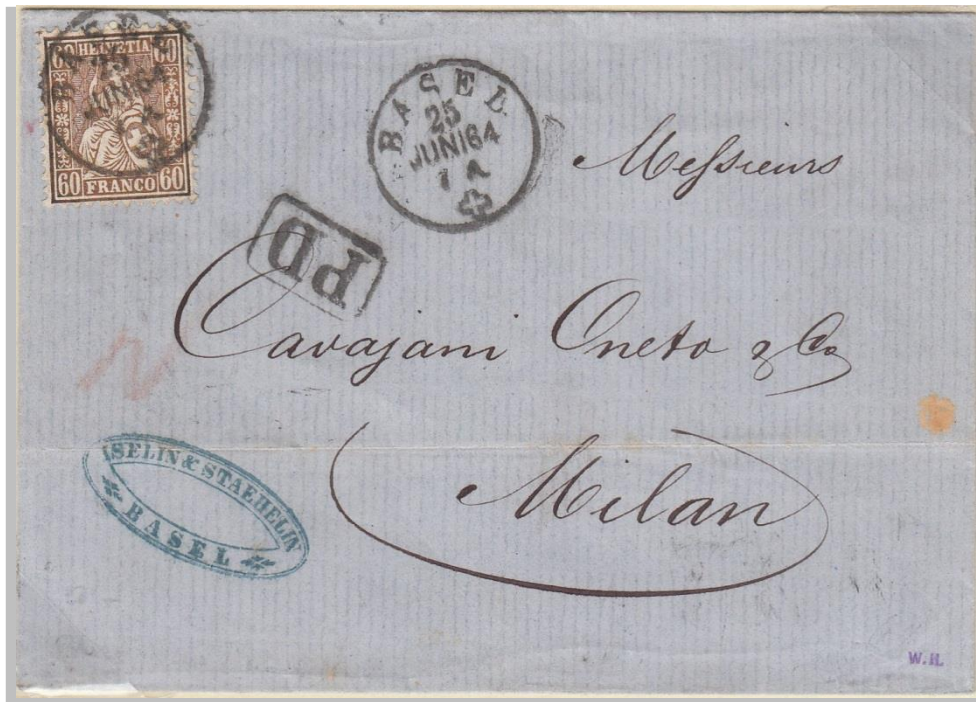 60 HELVETIA 60
60 FRANCO 60
BASEL
25
JUNI 64
1 A
PD
Messieurs
Cavajani Oneto & Co
Milan
ISELIN & STAEHELIN
BASEL
W.H.